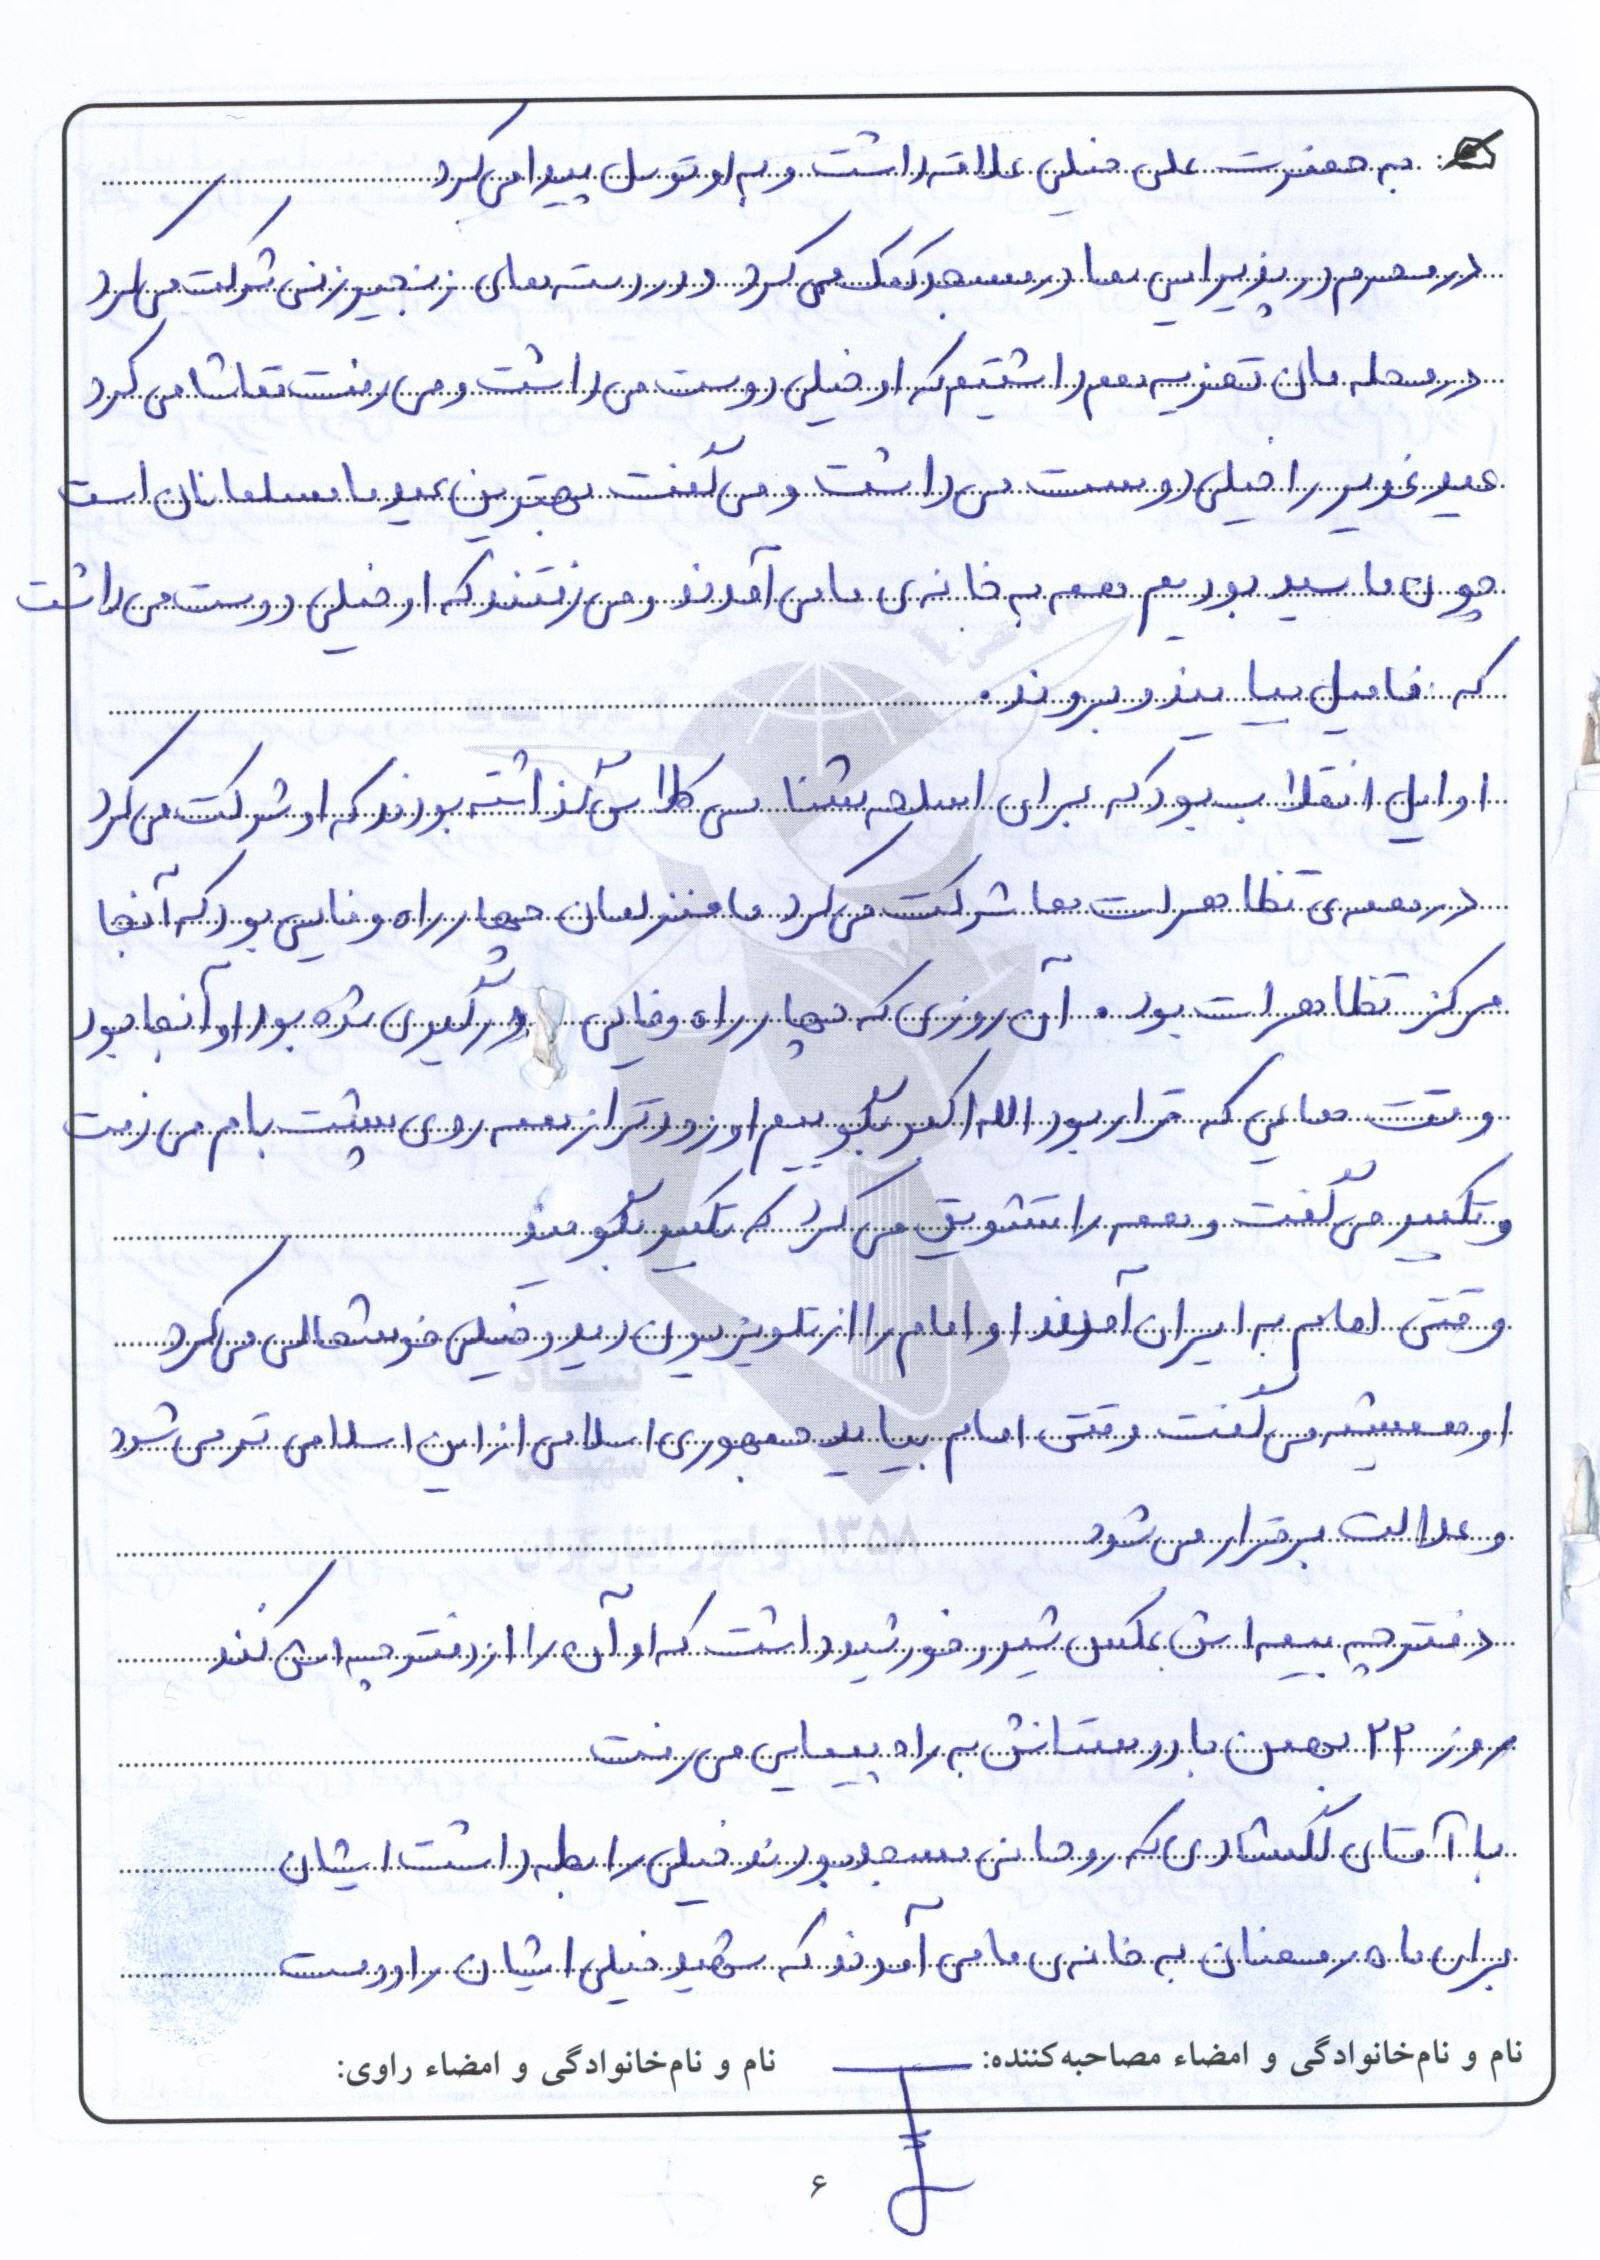 به حضرت علی خیلی علاقه داشت و به او توسل پیدا می کرد
در محرم در پذیرایی ها در مسجد کمک می کرد و در دسته های زنجیر زنی شرکت می کرد
در محله مان تعزیه هم داشتیم که او خیلی دوست می داشت و می رفت تماشا می کرد
عید غدیر را خیلی دوست می داشت و می گفت بهترین عید ما مسلمانان است
چون ما سید بودیم همه به خانه ی ما می آمدند و می رفتند که او خیلی دوست می داشت
که فامیل بیایند و بروند.
اوایل انقلاب بود که برای اسلحه شناسی کلاس گذاشته بودند که او شرکت می کرد
در همه ی تظاهرات ها شرکت می کرد ما منزلمان چهار راه وفایی بود که آنجا
مرکز تظاهرات بود. آن روزی که چهار راه وفایی درگیری شده بود او آنجا بود
وقت هایی که قرار بود الله اکبر بگوییم او زودتر از همه روی پشت بام می رفت
و تکبیر می گفت و همه را تشویق می کرد که تکبیر بگویند
وقتی امام به ایران آمدند او امام را از تلویزیون دید و خیلی خوشحالی می کرد
او همیشه می گفت وقتی امام بیاید جمهوری اسلامی از این اسلامی تر می شود
و عدالت برقرار می شود
دفترچه بیمه اش عکس شیر و خورشید داشت که او آن را از دفترچه اش کند
روز ۲۲ بهمن با دوستانش به راه پیمایی می رفت
با آقای گلگشادی که روحانی مسجد بودند خیلی رابطه داشت ایشان
برای ماه رمضان به خانه ی ما می آمدند که شهید خیلی ایشان را دوست
نام و نام‌خانوادگی و امضاء مصاحبه‌کننده:
نام و نام‌خانوادگی و امضاء راوی:
۶